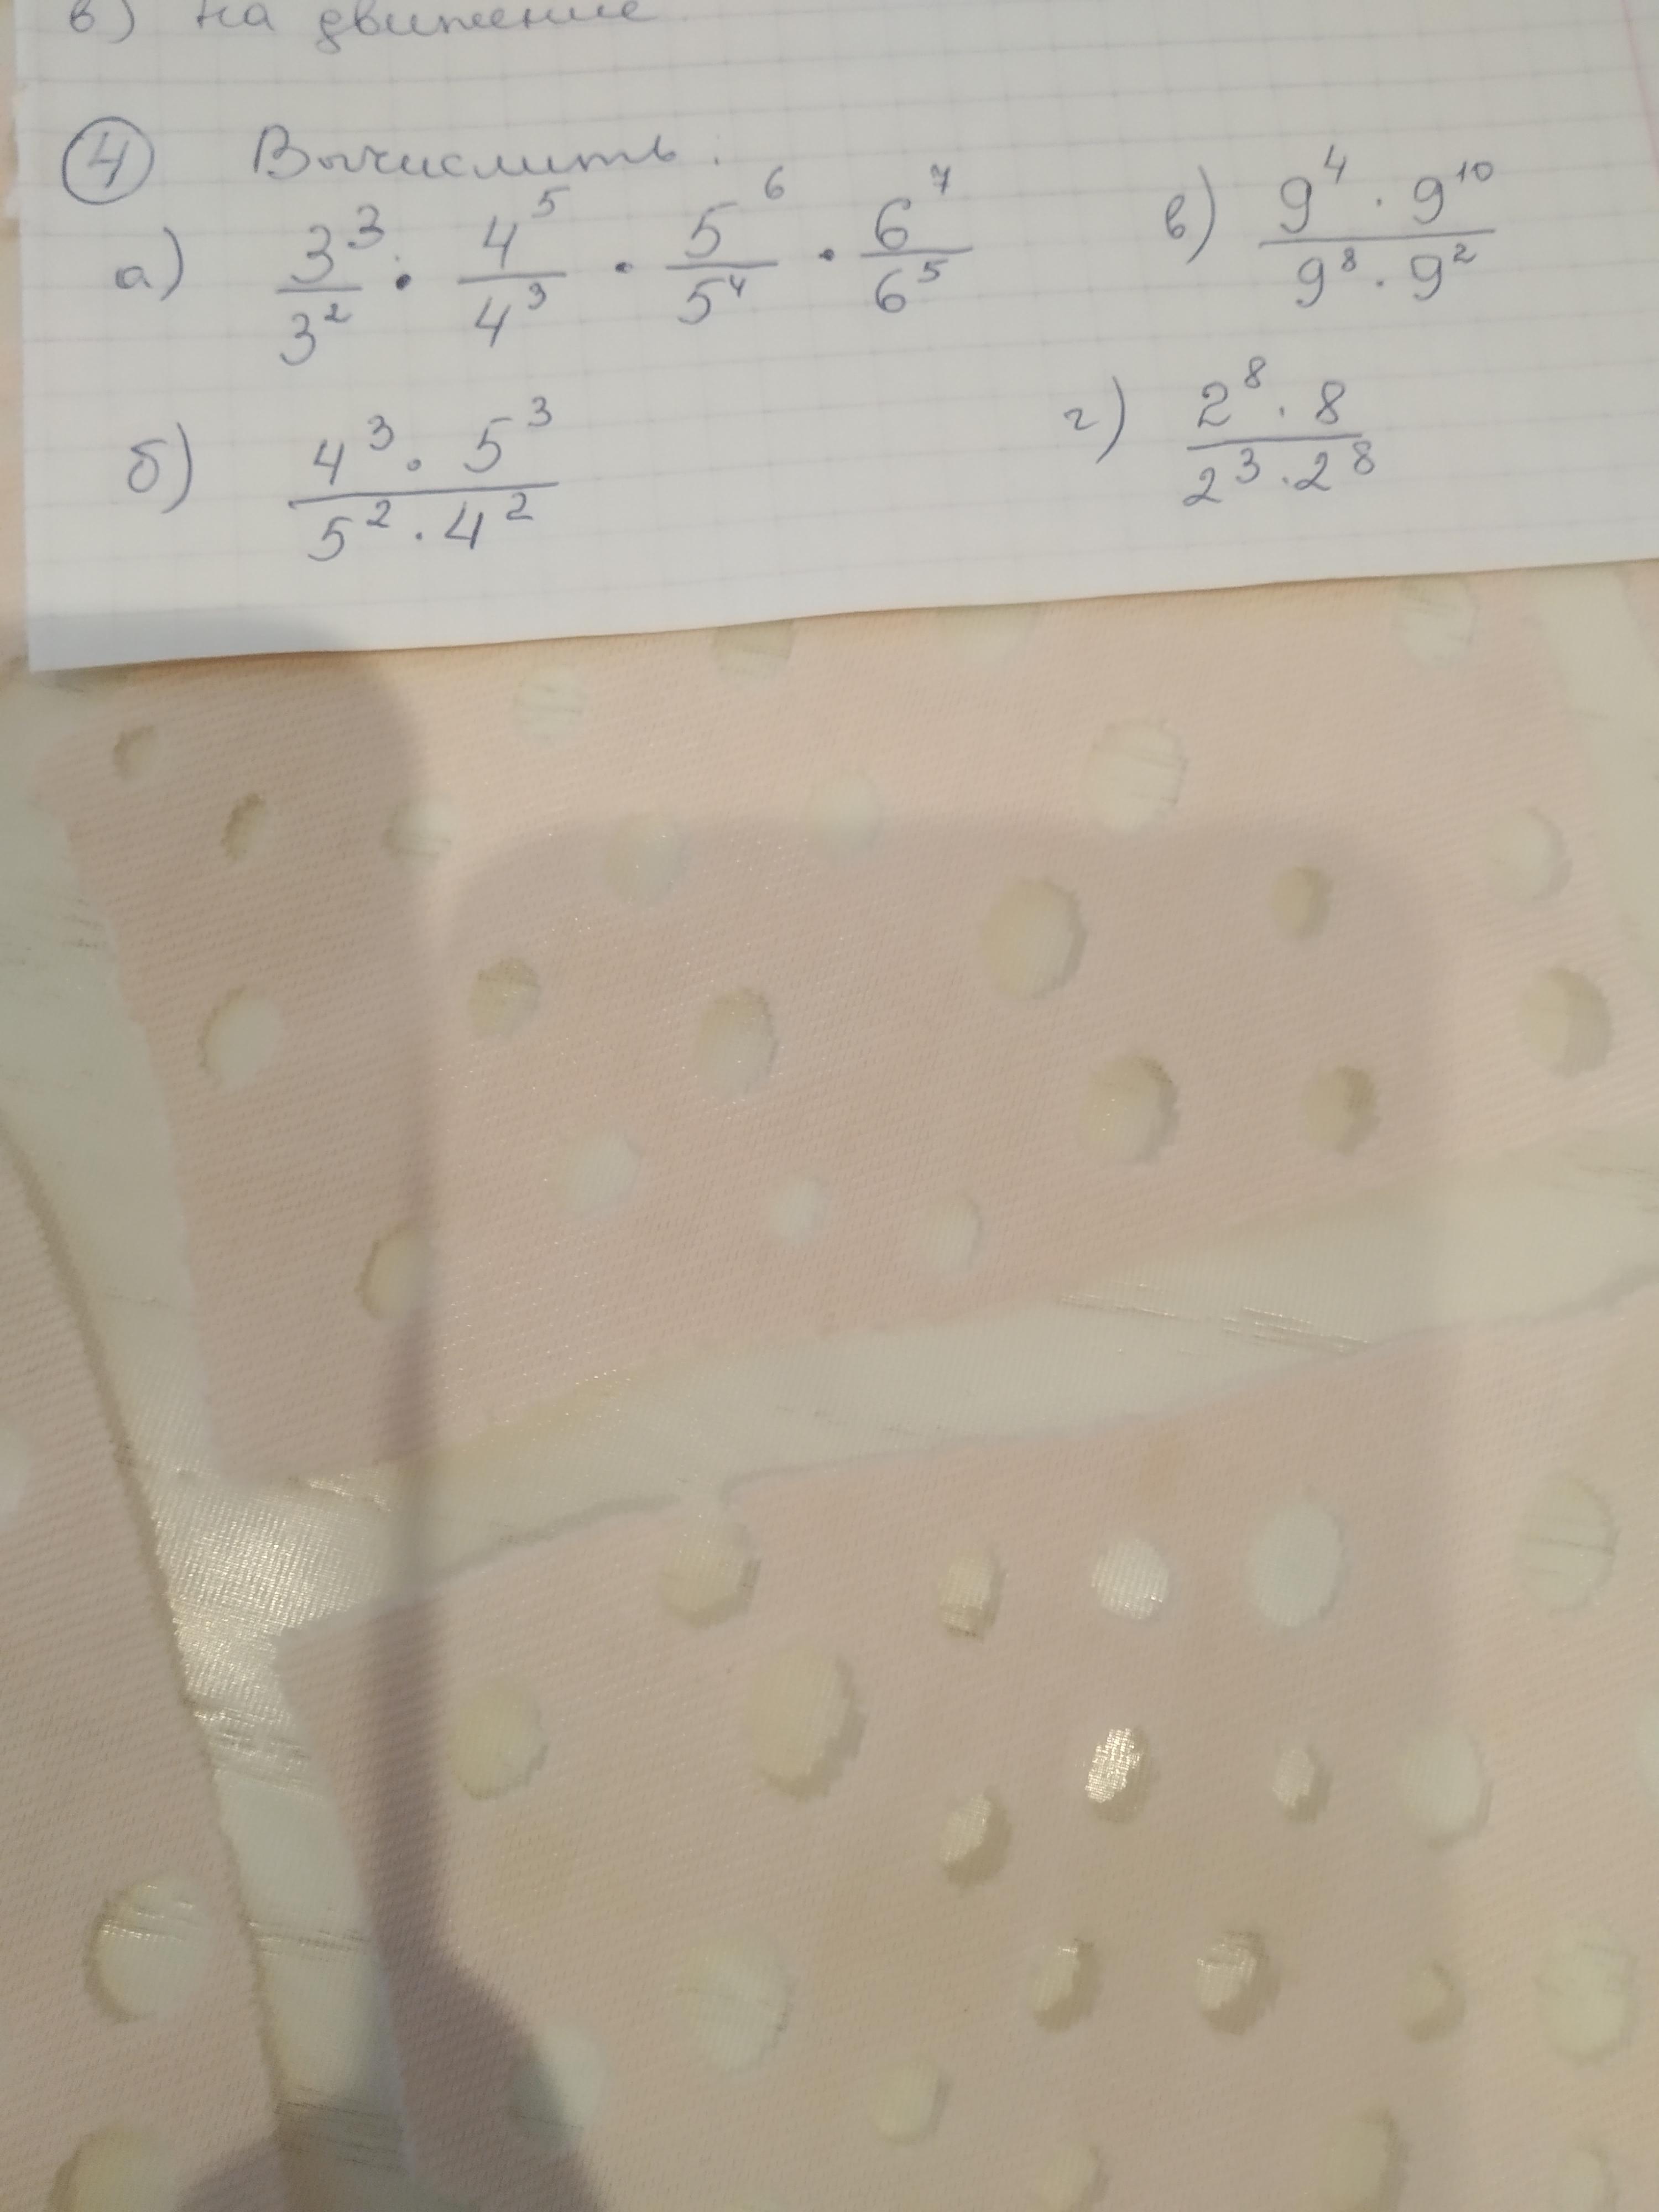 в) на движение
④ Вычислить.
а) 3³/3² · 4⁵/4³ · 5⁶/5⁴ · 6⁷/6⁵
в) 9⁴ · 9¹⁰ / 9⁸ · 9²
б) 4³ · 5³ / 5² · 4²
г) 2⁸ · 8 / 2³ · 2⁸